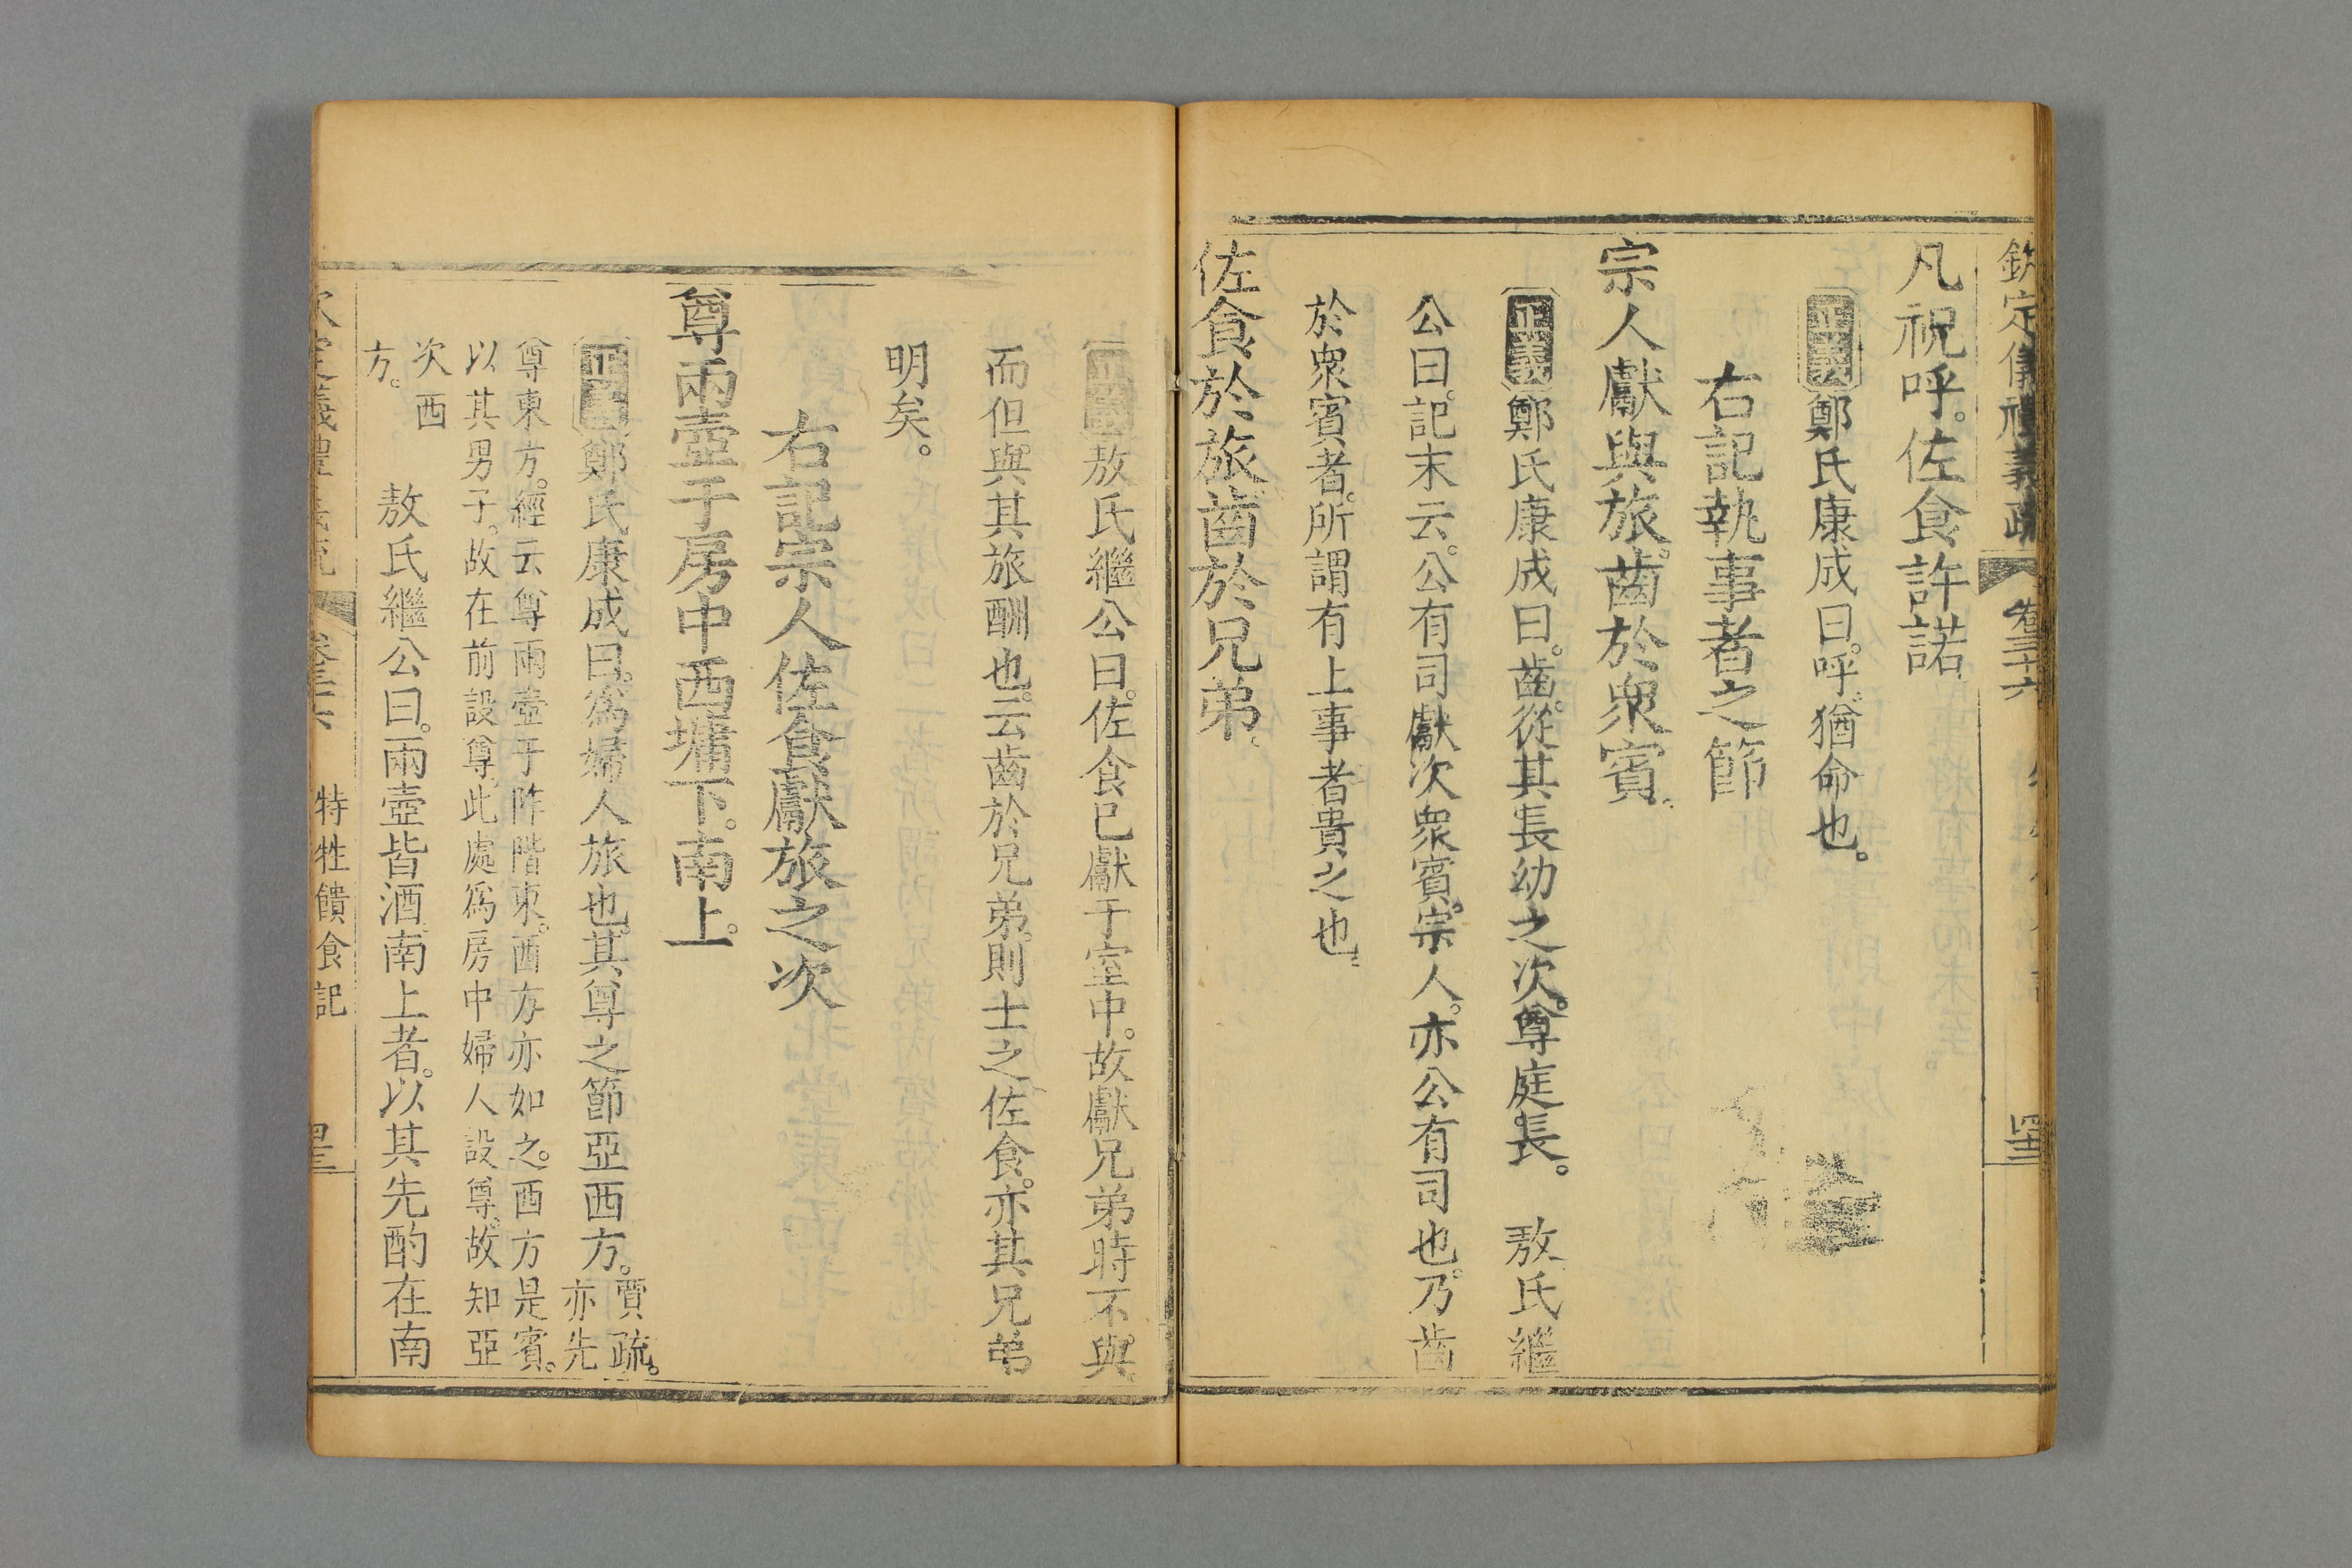 欽定儀禮義疏 卷三十六
凡祝呼。佐食許諾
正義鄭氏康成曰。呼。猶命也。
右記執事者之節
宗人獻與旅。齒於衆賓。
正義鄭氏康成曰。齒。從其長幼之次。尊庭長。 敖氏繼
公曰。記末云。公有司獻次衆賓。宗人。亦公有司也。乃齒
於衆賓者。所謂有上事者貴之也。
佐食於旅。齒於兄弟。
正義敖氏繼公曰。佐食巳獻于室中。故獻兄弟時不與。
而但與其旅酬也。云齒於兄弟。則士之佐食。亦其兄弟
明矣。
右記宗人佐食獻旅之次
尊兩壺于房中西墉下。南上。
正義鄭氏康成曰。爲婦人旅也。其尊之節亞西方。賈疏。亦先
尊東方。經云尊兩壺于阼階東。西方亦如之。西方是賓。
以其男子。故在前設尊。此處爲房中婦人設尊。故知亞
次西
方。
敖氏繼公曰。兩壺皆酒。南上者。以其先酌在南
特牲饋食記